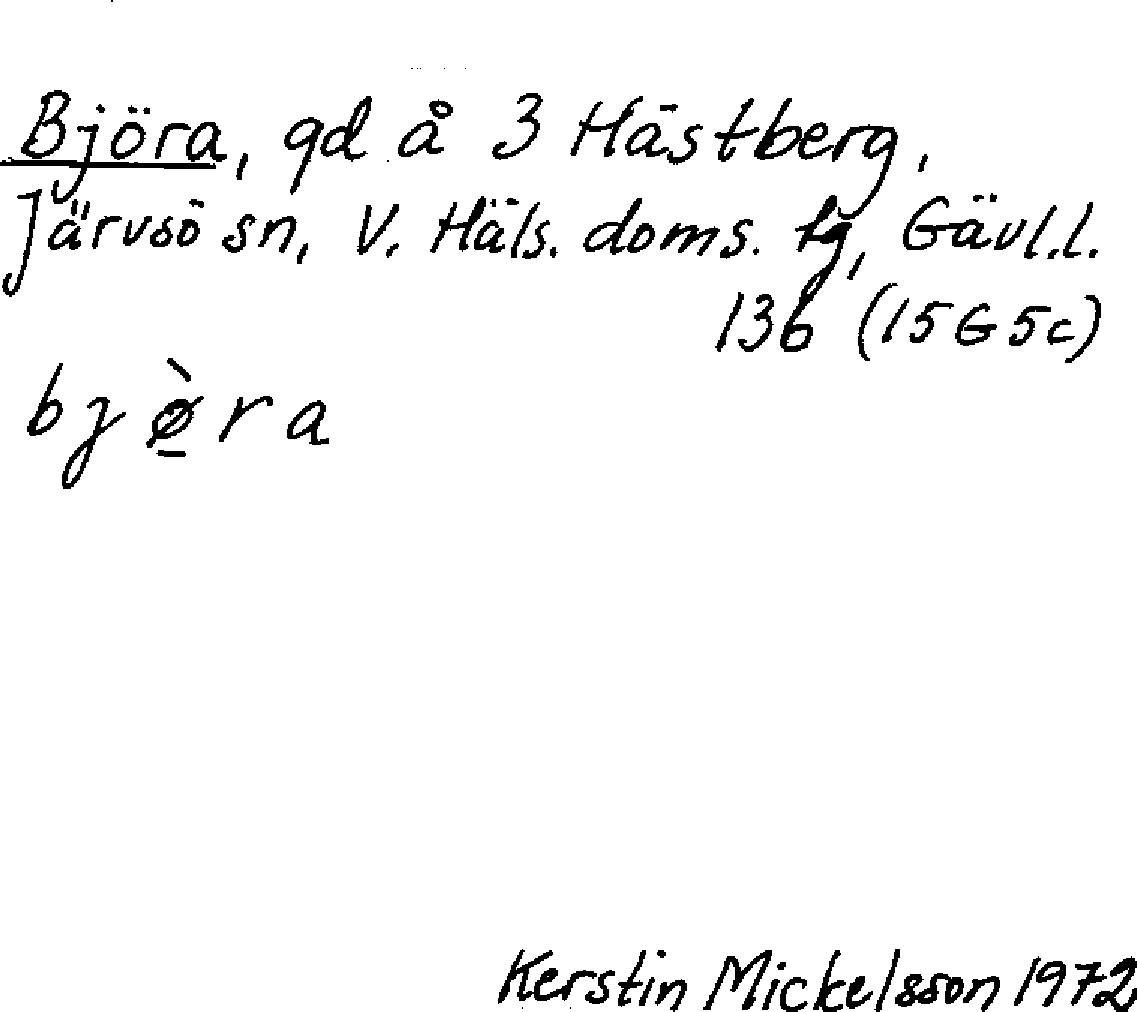 Björa, gd å 3 Hästberg,
Järvsö sn, V. Häls. doms. tg, Gävl.l.
136 (15G5c)
bjø̱̀ra
Kerstin Mickelsson 1972